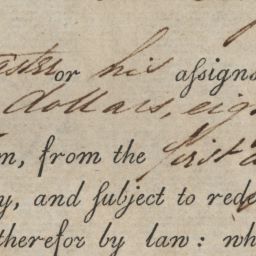 or his aſsigns
dollars, eig
n, from the first
y, and ſubject to rede
therefor by law: wh